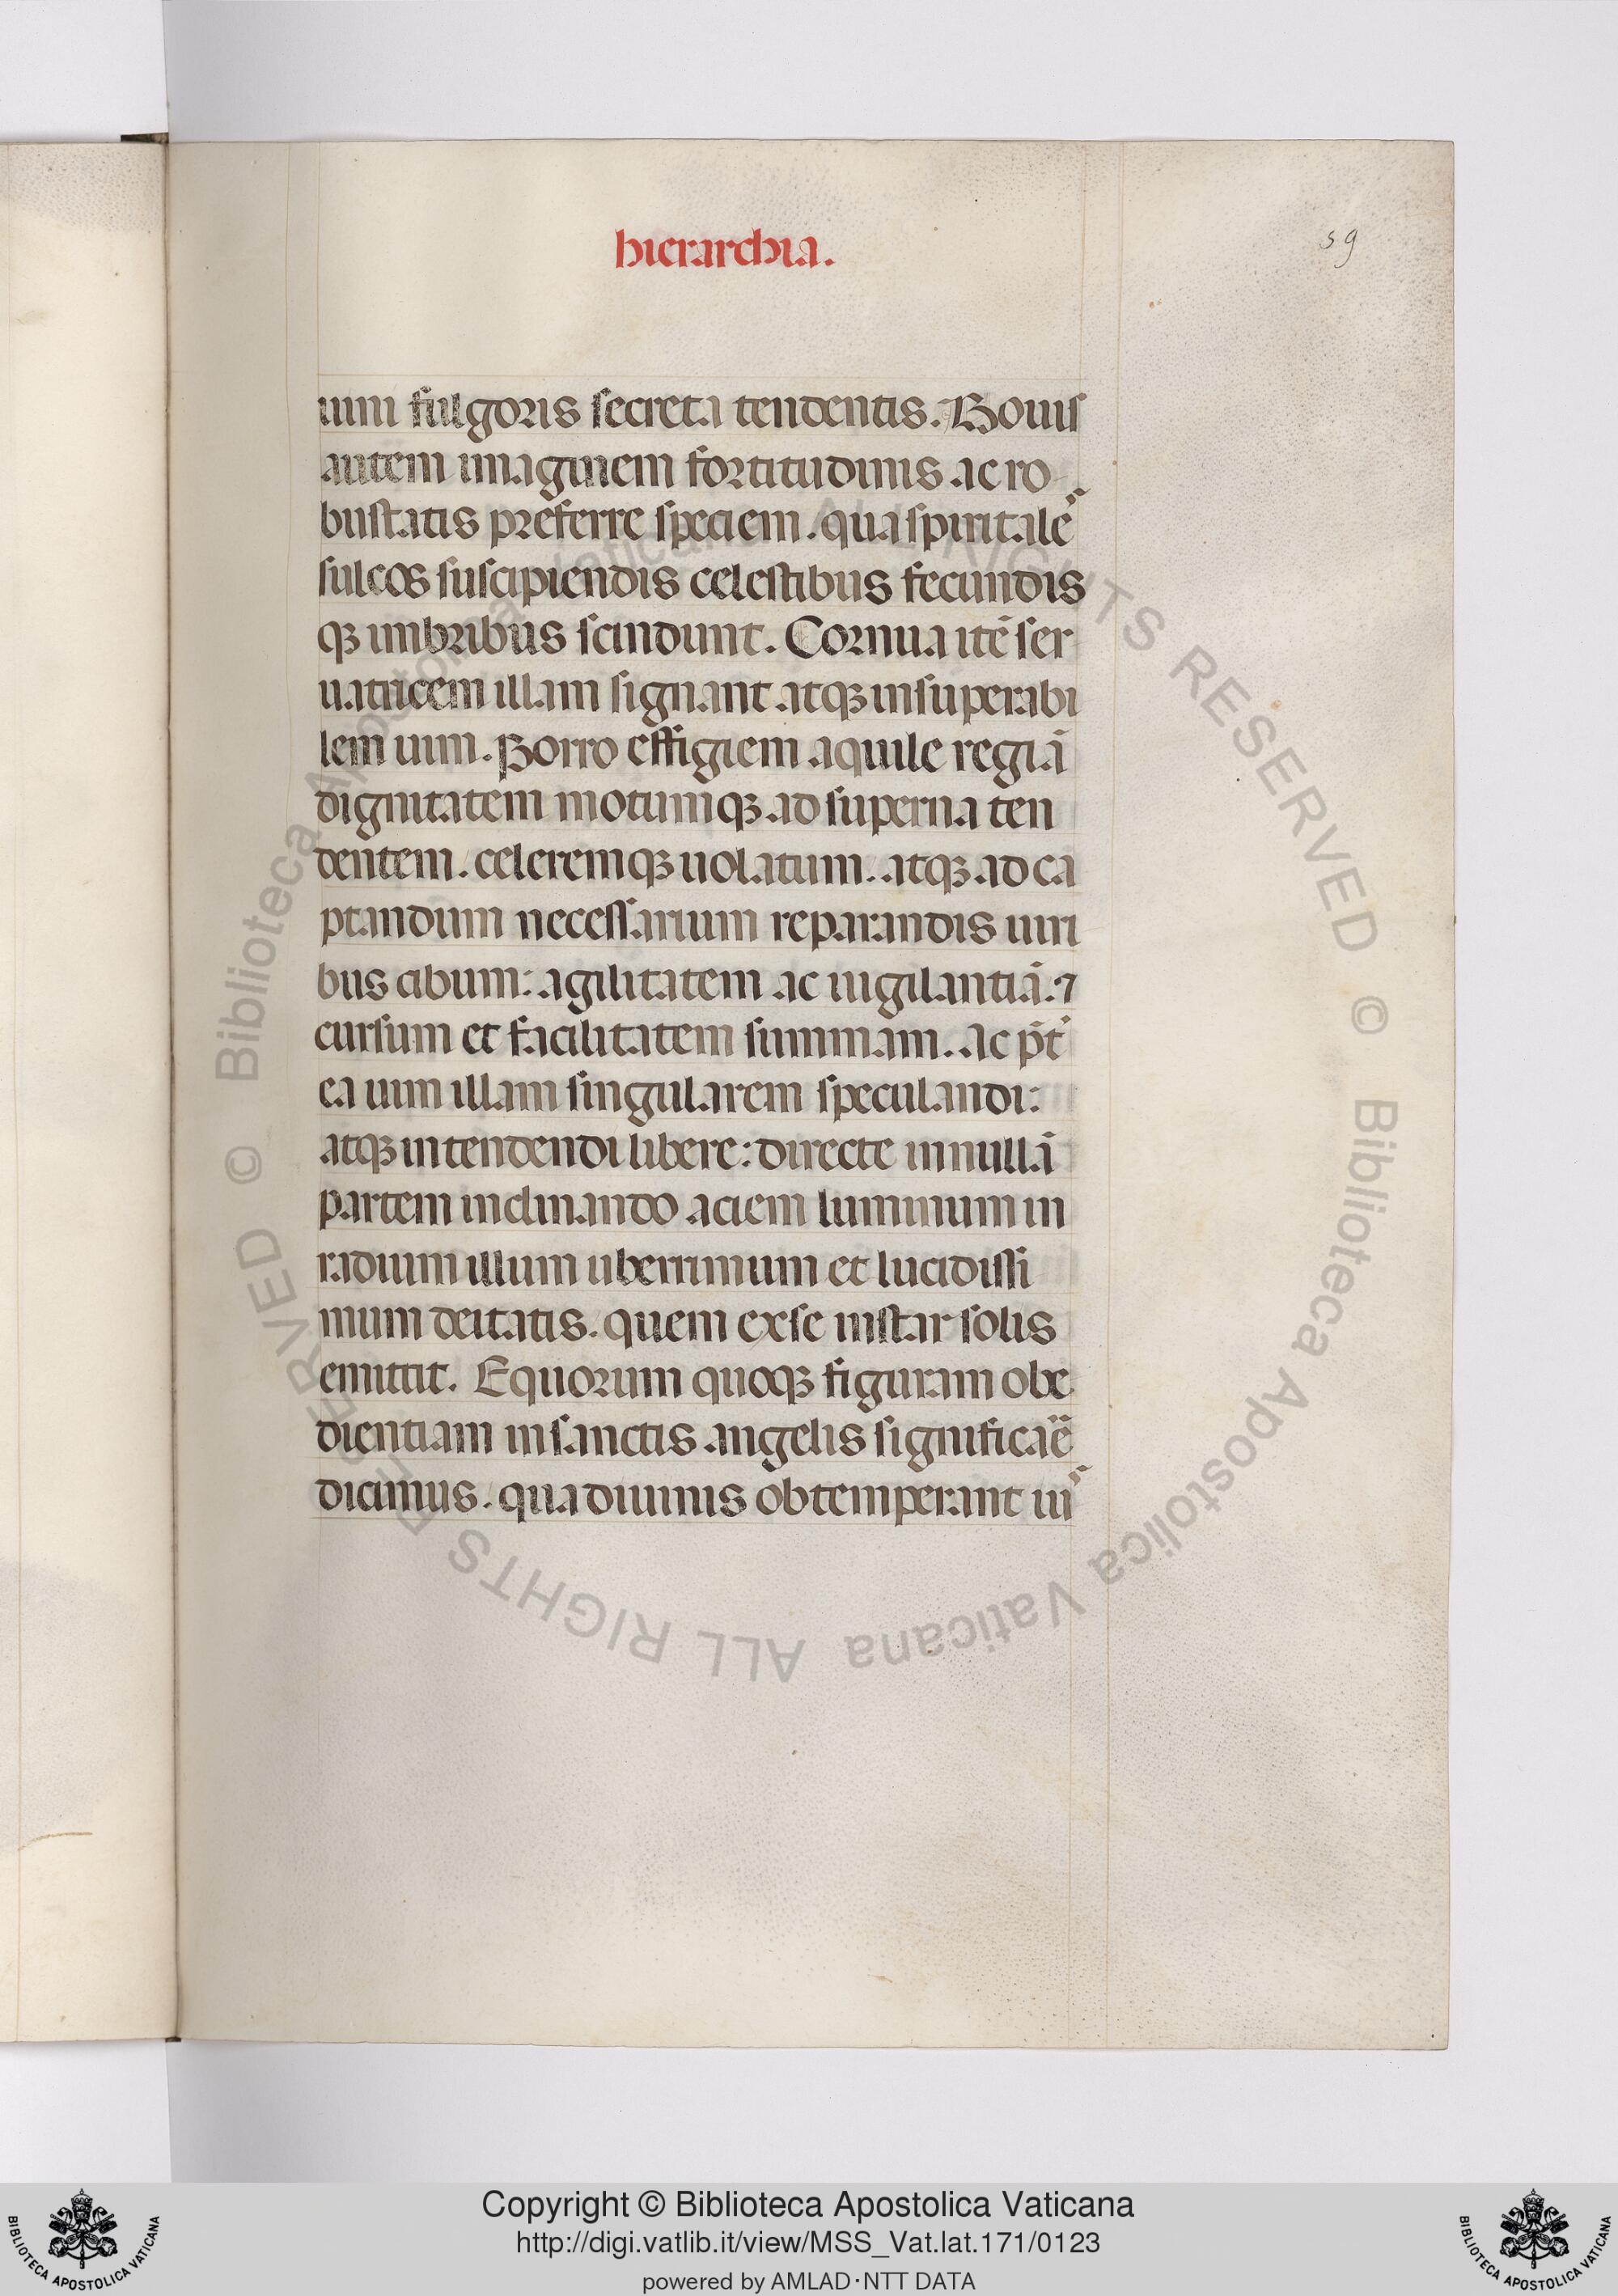 hierarchia.
59
uini fulgoris secreta tendentis. Bouis
autem imaginem fortitudinis ac ro
bustatis preferre speciem. qua spiritale᷒
sulcos suscipiendis celestibus fecundis
qꝫ imbribus scindunt. Cornua itē ser
uatricem illam signant atqꝫ insuperabi
lem uim. Porro effigiem aquile regiā
dignitatem motumqꝫ ad superna ten
dentem. celeremqꝫ uolatum. atqꝫ ad ca
ptandum necessarium reparandis uiri
bus cibum: agilitatem ac uigilantiā. ⁊
cursum et facilitatem summam. Ac p̄t
ea uim illam singularem speculandi:
atqꝫ intendendi libere: directe in nullā
partem inclinando aciem luminum in
radium illum uberrimum et lucidissi
mum deitatis. quem ex se instar solis
emittit. Equorum quoqꝫ figuram obe
dientiam in sanctis angelis significar̄e
dicimus. qua diuinis obtemperant iu᷒
© Biblioteca Apostolica Vaticana ALL RIGHTS RESERVED © Biblioteca Apostolica Vaticana ALL RIGHTS RESERVED
Copyright © Biblioteca Apostolica Vaticana
http://digi.vatlib.it/view/MSS_Vat.lat.171/0123
powered by AMLAD·NTT DATA
BIBLIOTECA APOSTOLICA VATICANA
BIBLIOTECA APOSTOLICA VATICANA